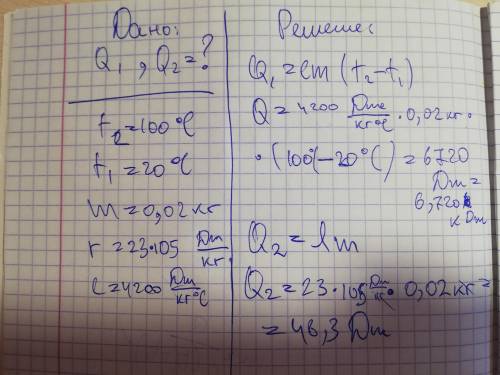 Дано:
Q₁, Q₂=?
t₂=100°C
t₁=20°C
m=0,02кг
r=23·105 Dm/кг.
c=4200 Dm/кг°C
Решение:
Q₁=cm(t₂-t₁)
Q=4200 Dm/кг°C·0,02кг·
·(100°-20°C)=6720
Dm=
6,720
кDm
Q₂=lm
Q₂=23·105 Dm/кг·0,02кг=
=46,3 Dm